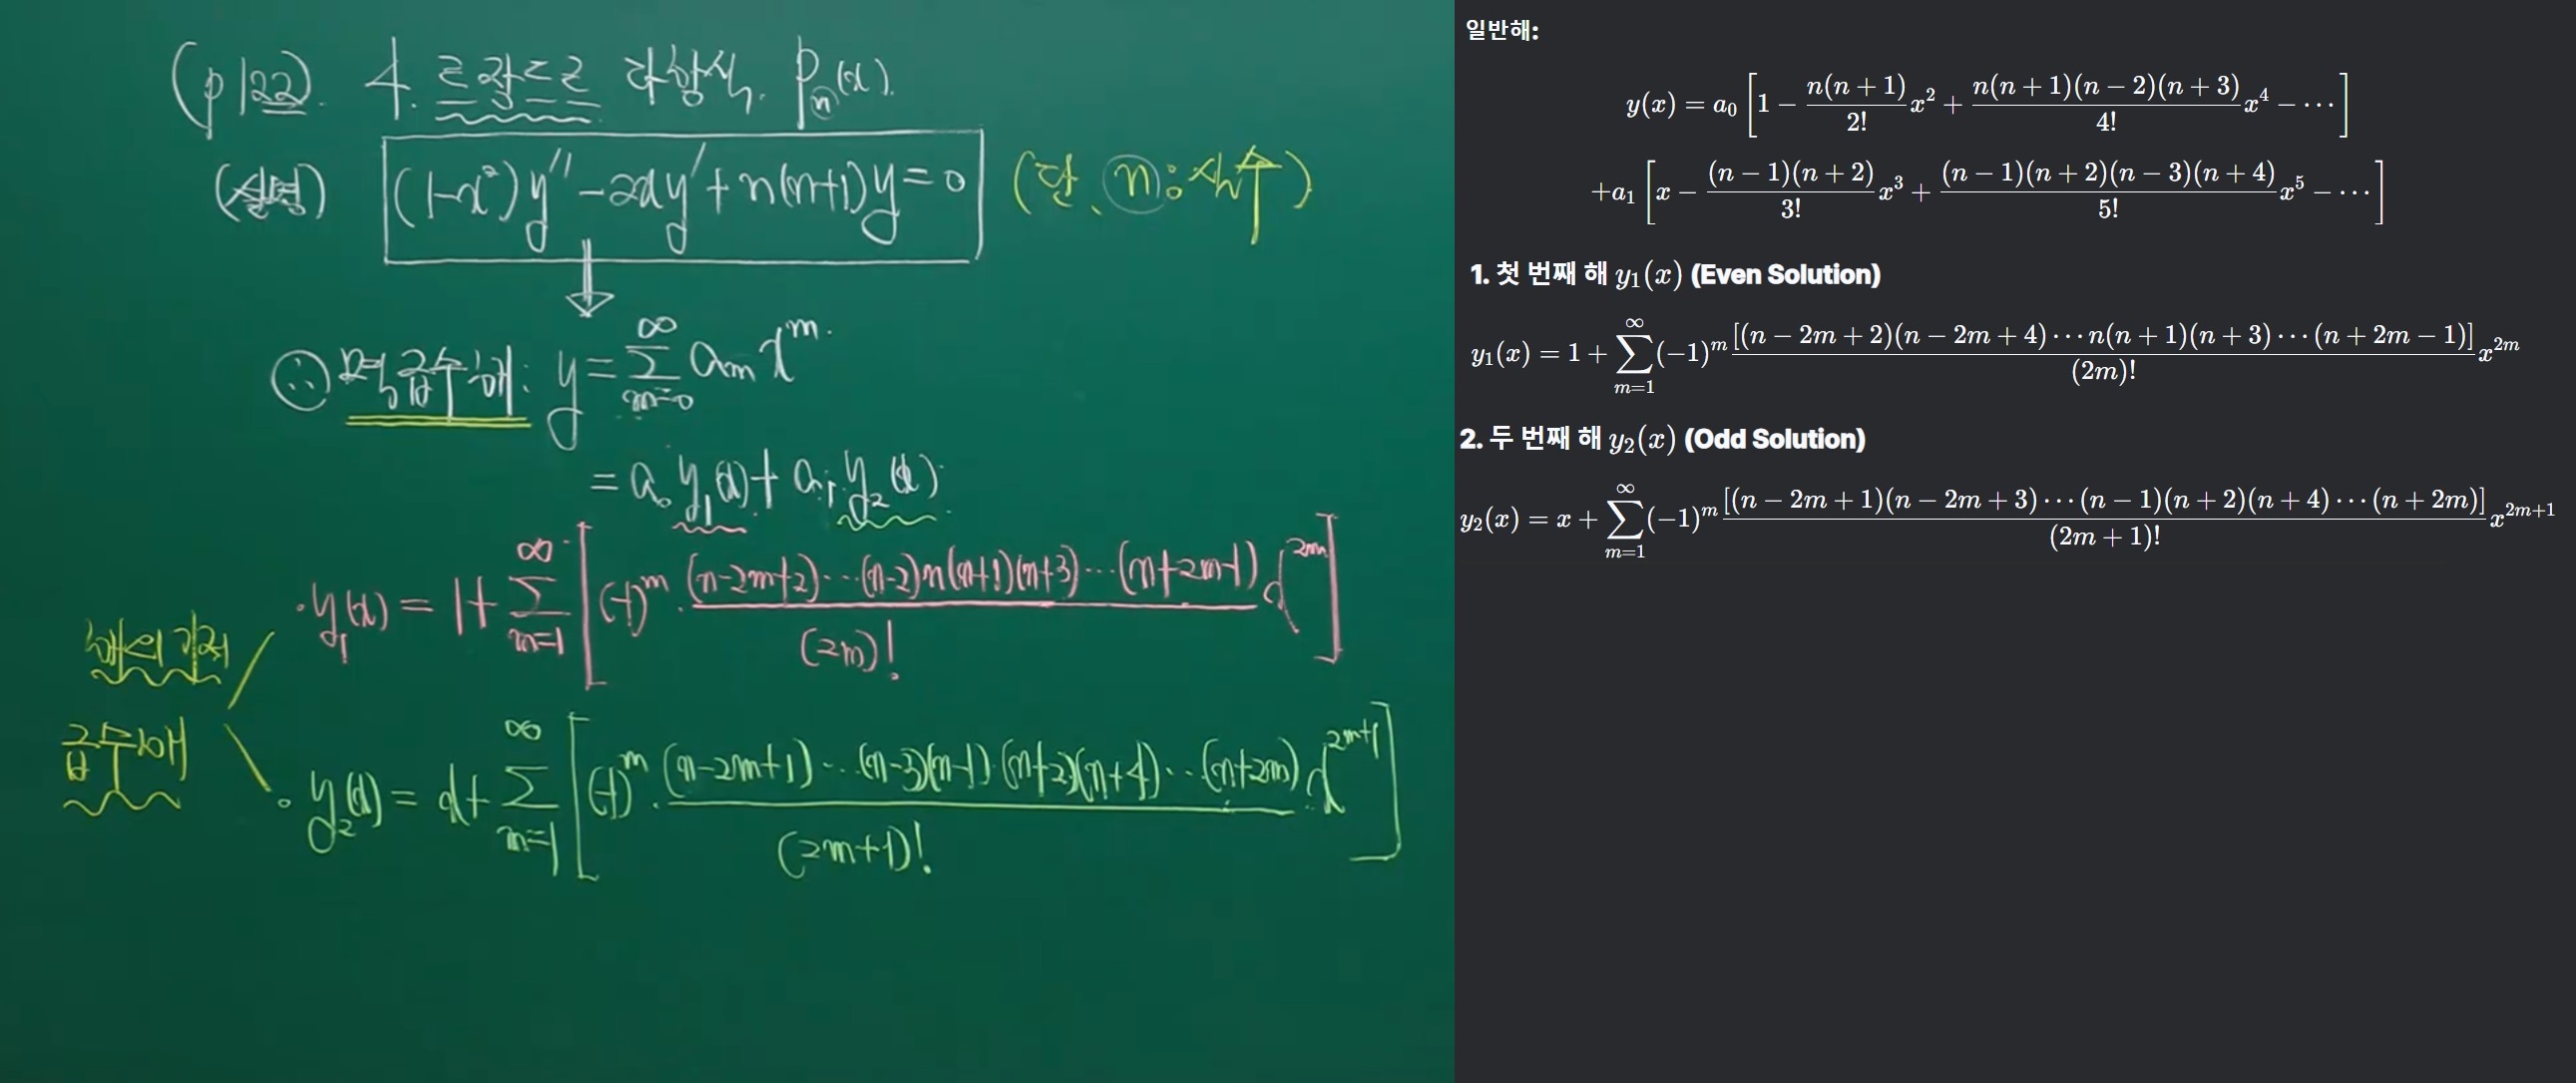 (p122). 4. 르장드르 다항식. Pₙ(x).
(설명) (1-x²)y''-2xy'+n(n+1)y=0 (단, n:상수)
∴ 멱급수해: y=∑_{m=0}^{∞} aₘxᵐ.
= a₀y₁(x)+a₁y₂(x).
·y₁(x) = 1+∑_{m=1}^{∞}[(-1)ᵐ·\frac{(n-2m+2)···(n-2)n(n+1)(n+3)···(n+2m-1)}{(2m)!}x^{2m}]
해의 기저
급수해
·y₂(x) = x+∑_{m=1}^{∞}[(-1)ᵐ·\frac{(n-2m+1)···(n-3)(n-1)·(n+2)(n+4)···(n+2m)}{(2m+1)!}·x^{2m+1}]
일반해:
y(x) = a₀[1 - \frac{n(n+1)}{2!}x² + \frac{n(n+1)(n-2)(n+3)}{4!}x⁴ - ···]
+a₁[x - \frac{(n-1)(n+2)}{3!}x³ + \frac{(n-1)(n+2)(n-3)(n+4)}{5!}x⁵ - ···]
1. 첫 번째 해 y₁(x) (Even Solution)
y₁(x) = 1 + ∑_{m=1}^{∞}(-1)ᵐ\frac{[(n-2m+2)(n-2m+4)···n(n+1)(n+3)···(n+2m-1)]}{(2m)!}x^{2m}
2. 두 번째 해 y₂(x) (Odd Solution)
y₂(x) = x + ∑_{m=1}^{∞}(-1)ᵐ\frac{[(n-2m+1)(n-2m+3)···(n-1)(n+2)(n+4)···(n+2m)]}{(2m+1)!}x^{2m+1}